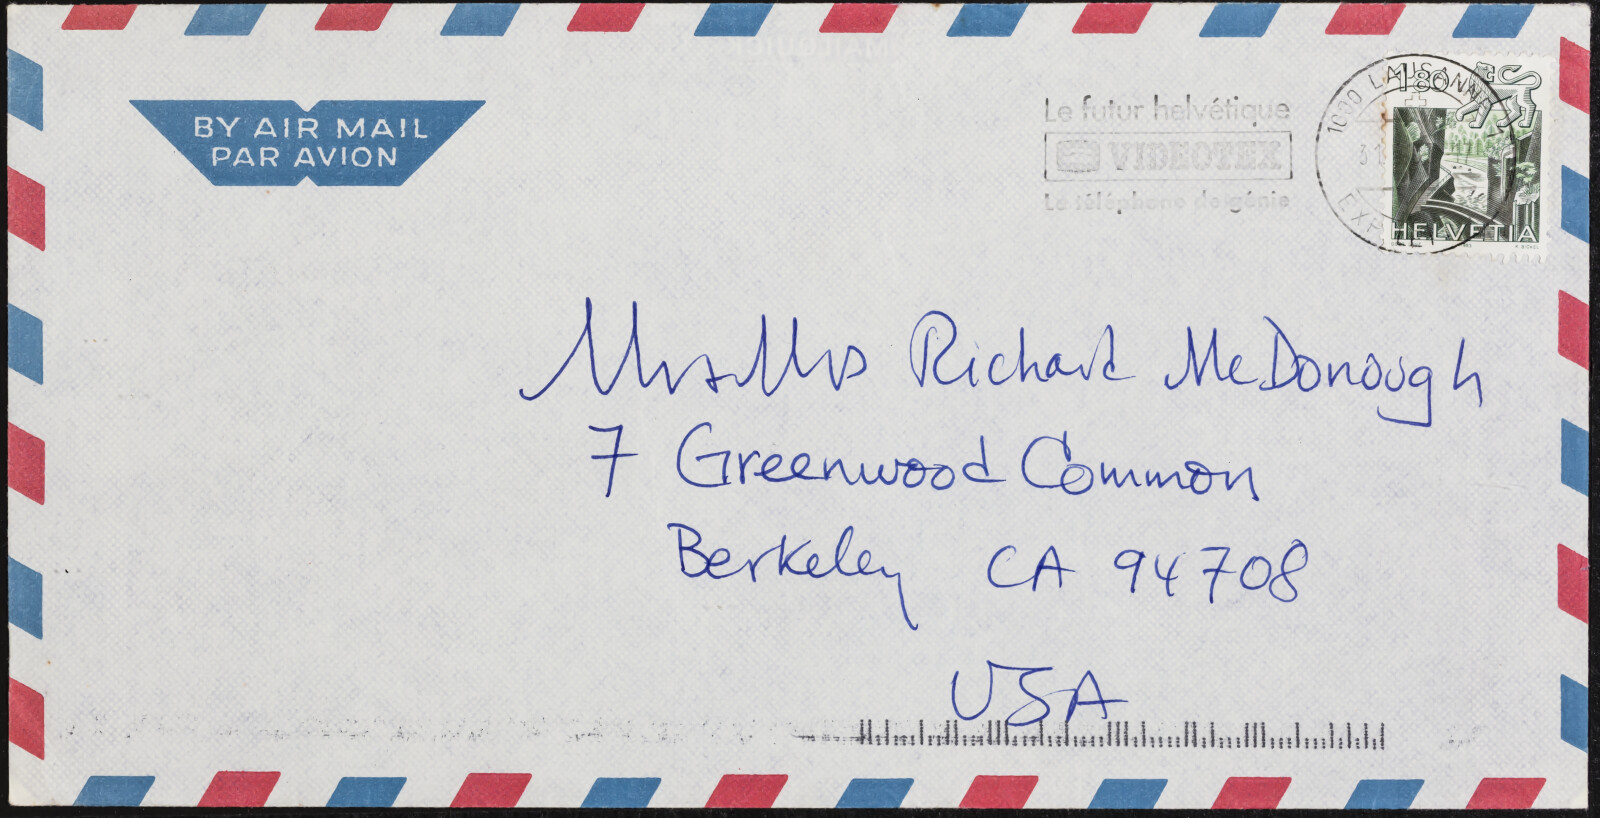 BY AIR MAIL
PAR AVION
Le futur helvétique
VIDEOTEX
Le téléphone de génie
1000 LAUSANNE 1
EXP LET
1·80
HELVETIA
Mr & Mrs Richard McDonough
7 Greenwood Common
Berkeley CA 94708
USA